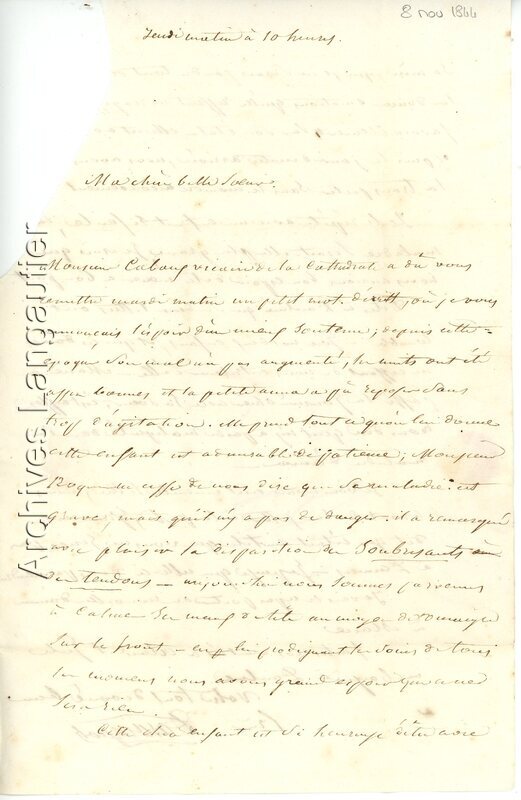 8 nov 1844
Jeudi matin à 10 heures.
Ma chère belle Soeur,
Monsieur Cabanf vicaire de la Cathédrale a dû vous
remettre mardi matin un petit mot d'écrit, où je vous
annonçais l'espoir d'un mieux soutenu; depuis cette
époque son mal n'a pas augmenté, les nuits ont été
assez bonnes et la petite anna a pû reposer sans
trop d'agitation. elle prend tout ce qu'on lui donne
cette enfant est admirable de patience; Monsieur
Roque ne cesse de nous dire que sa maladie est
grave, mais qu'il n'y a pas de danger. il a remarqué
avec plaisir la disparition des Soubresauts
des tendons — aujourd'hui nous sommes parvenus
à calmer les maux de tête au moyen de
sur le front — en lui prodiguant les soins de tous
les momens nous avons grand espoir que ce ne
sera rien.
Cette chère enfant est si heureuse d'être avec
Archives Langautier